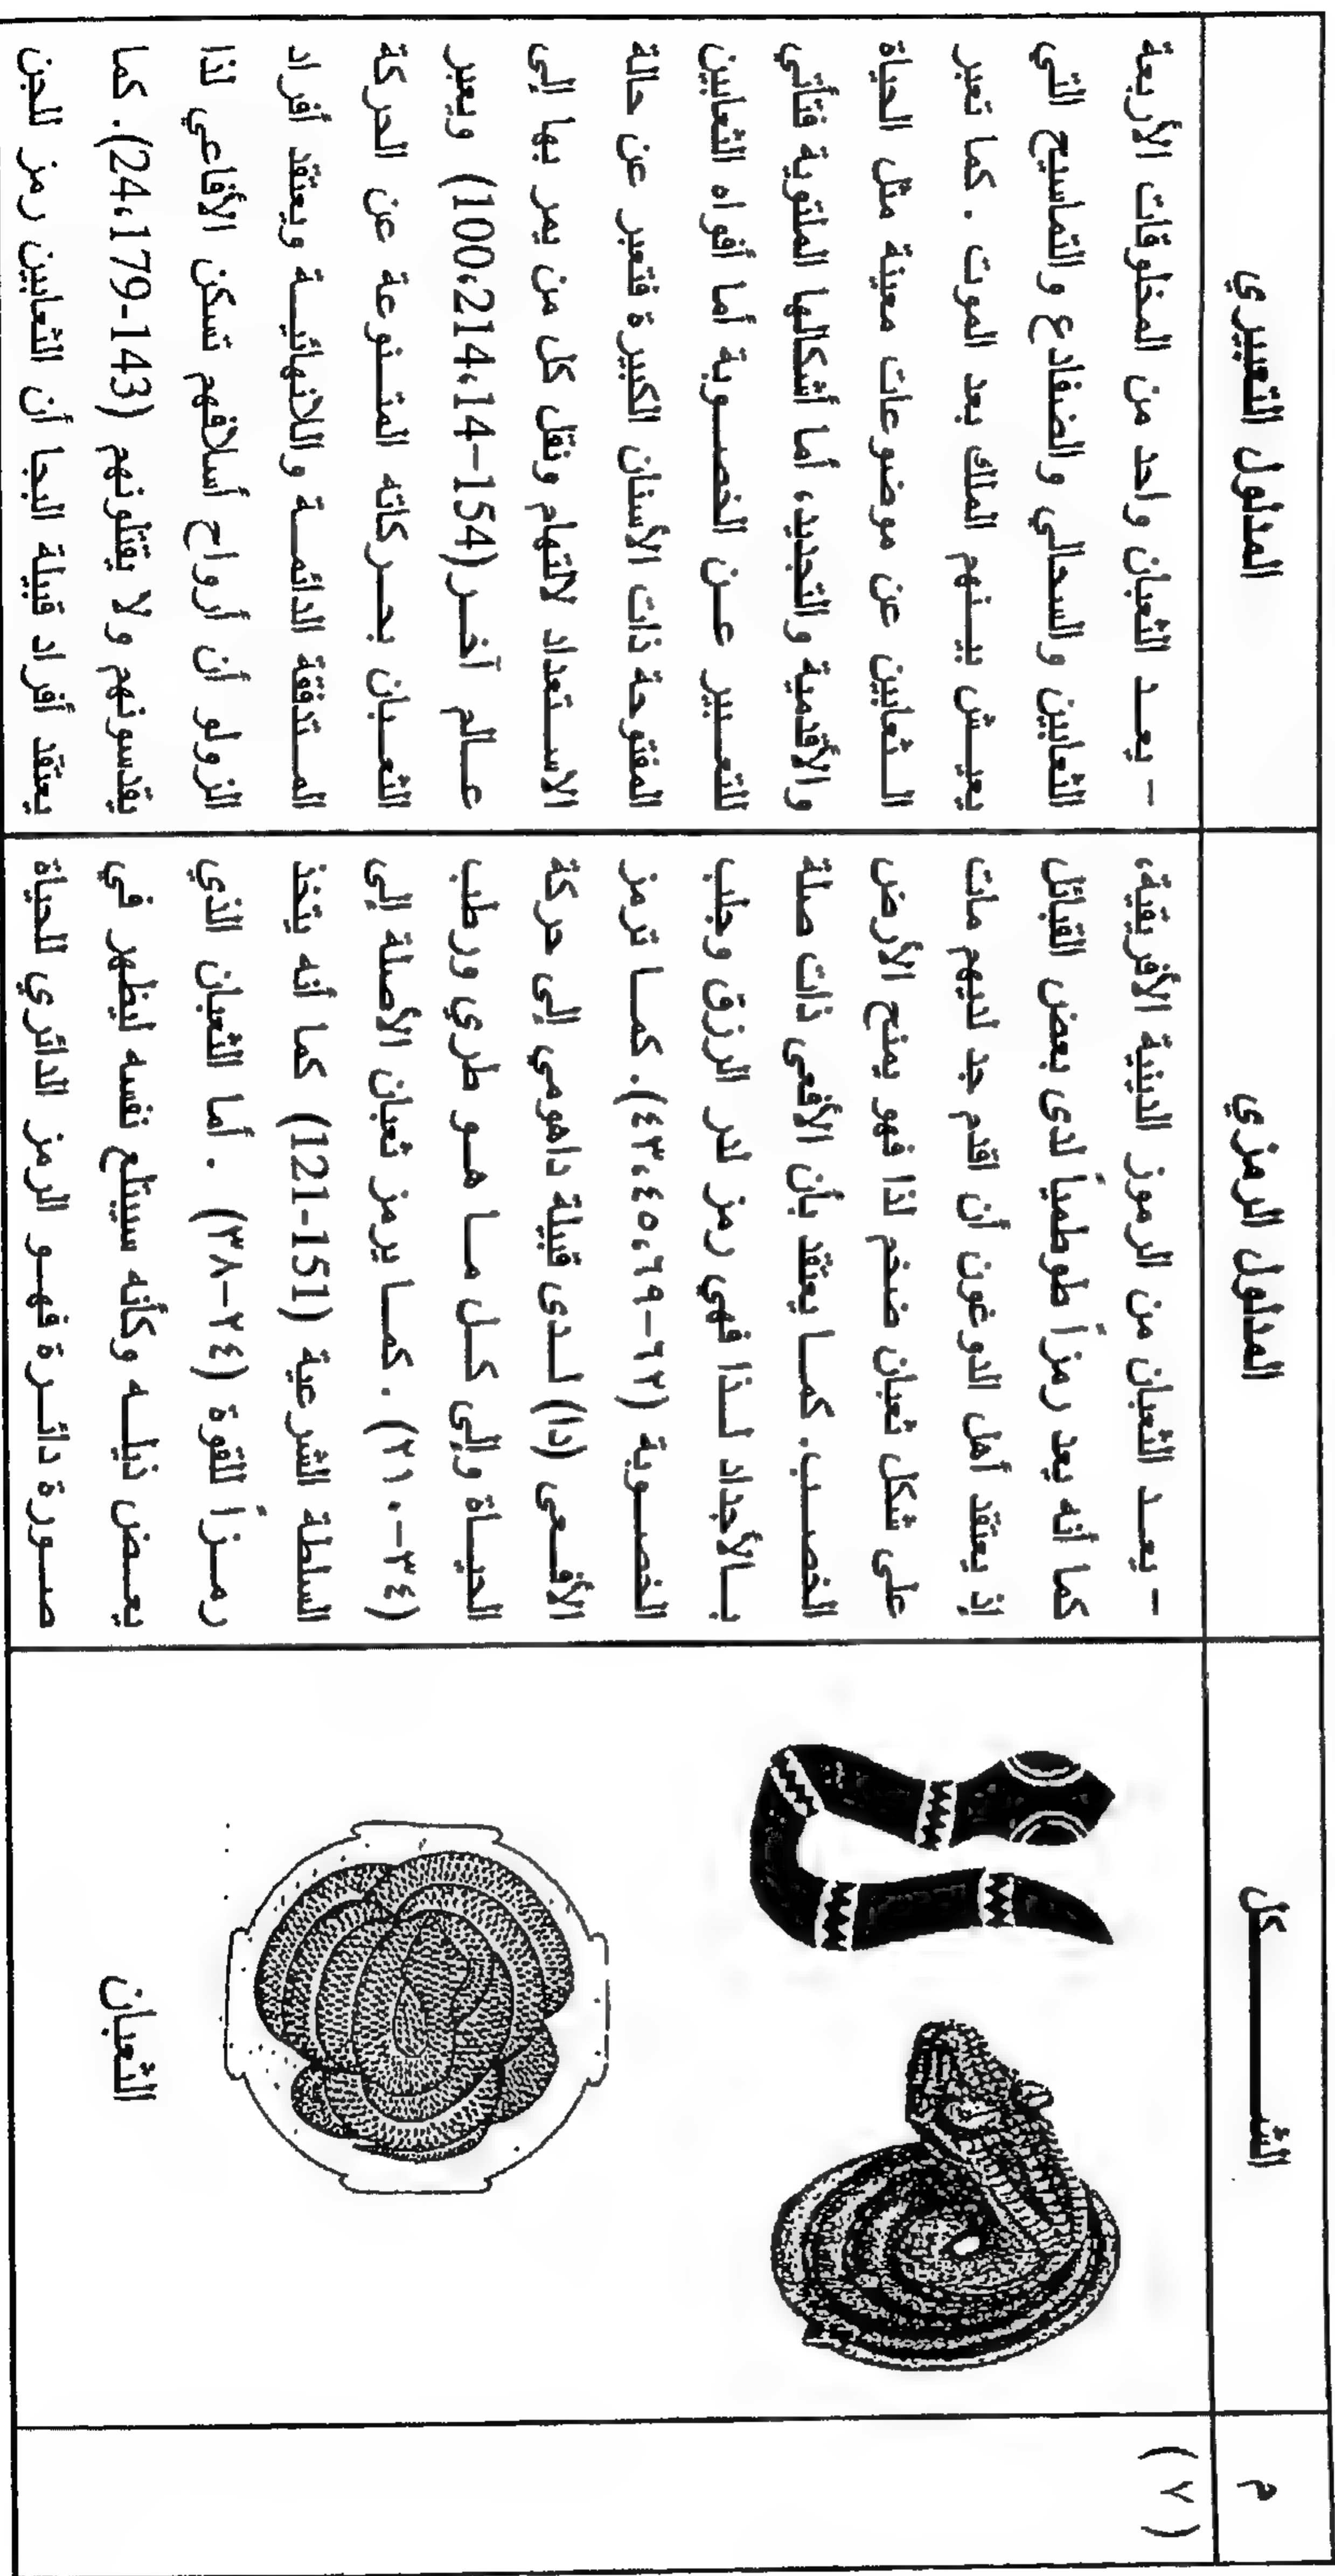 م
الشـــــــكل
المدلول الرمزي
المدلول التعبيري
(٧)
الثعبان
– يعـد الثعبان من الرموز الدينية الأفريقية،
كما أنه يعد رمزاً طوطمياً لدى بعض القبائل
إذ يعتقد أهل الدوغون أن اقدم جد لديهم مات
على شكل ثعبان ضخم لذا فهو يمنح الأرض
الخصـب. كمـا يعتقد بأن الأفعى ذات صلة
بـالأجداد لـذا فهي رمز لدر الرزق وجلب
الخصـوبة (٦٢-٤٣،٤٥،٦٩). كمـا ترمز
الأفـعى (دا) لـدى قبيلة داهومي إلى حركة
الحيـاة وإلى كـل مـا هـو طري ورطب
(٣٤-٢١٠). كمـا يرمز ثعبان الأصلة إلى
السلطة الشرعية (121-151) كما أنه يتخذ
رمـزاً للقوة (٢٤-٣٨). أما الثعبان الذي
يعـض ذيلـه وكأنه سيبتلع نفسه ليظهر في
صـورة دائـرة فهـو الرمز الدائري للحياة
– يعـد الثعبان واحد من المخلوقات الأربعة
الثعابين والسحالي والضفادع والتماسيح التي
يعيـش بيـنهم الملك بعد الموت. كما تعبر
الـثعابين عن موضوعات معينة مثل الحياة
والأقدمية والتجديد، أما أشكالها الملتوية فتأتي
للتعـبير عـن الخصـوبة أما أفواه الثعابين
المفتوحة ذات الأسنان الكبيرة فتعبر عن حالة
الاسـتعداد لالتهام ونقل كل من يمر بها إلى
عـالم آخـر(154-100،214،14) ويعبر
الثعـبان بحـركاته المتـنوعة عن الحركة
المـتدفقة الدائمـة واللانهائيـة ويعتقد أفراد
الزولو أن أرواح أسلافهم تسكن الأفاعي لذا
يقدسونهم ولا يقتلونهم (143-24،179). كما
يعتقد أفراد قبيلة البجا أن الثعابين رمز للجن